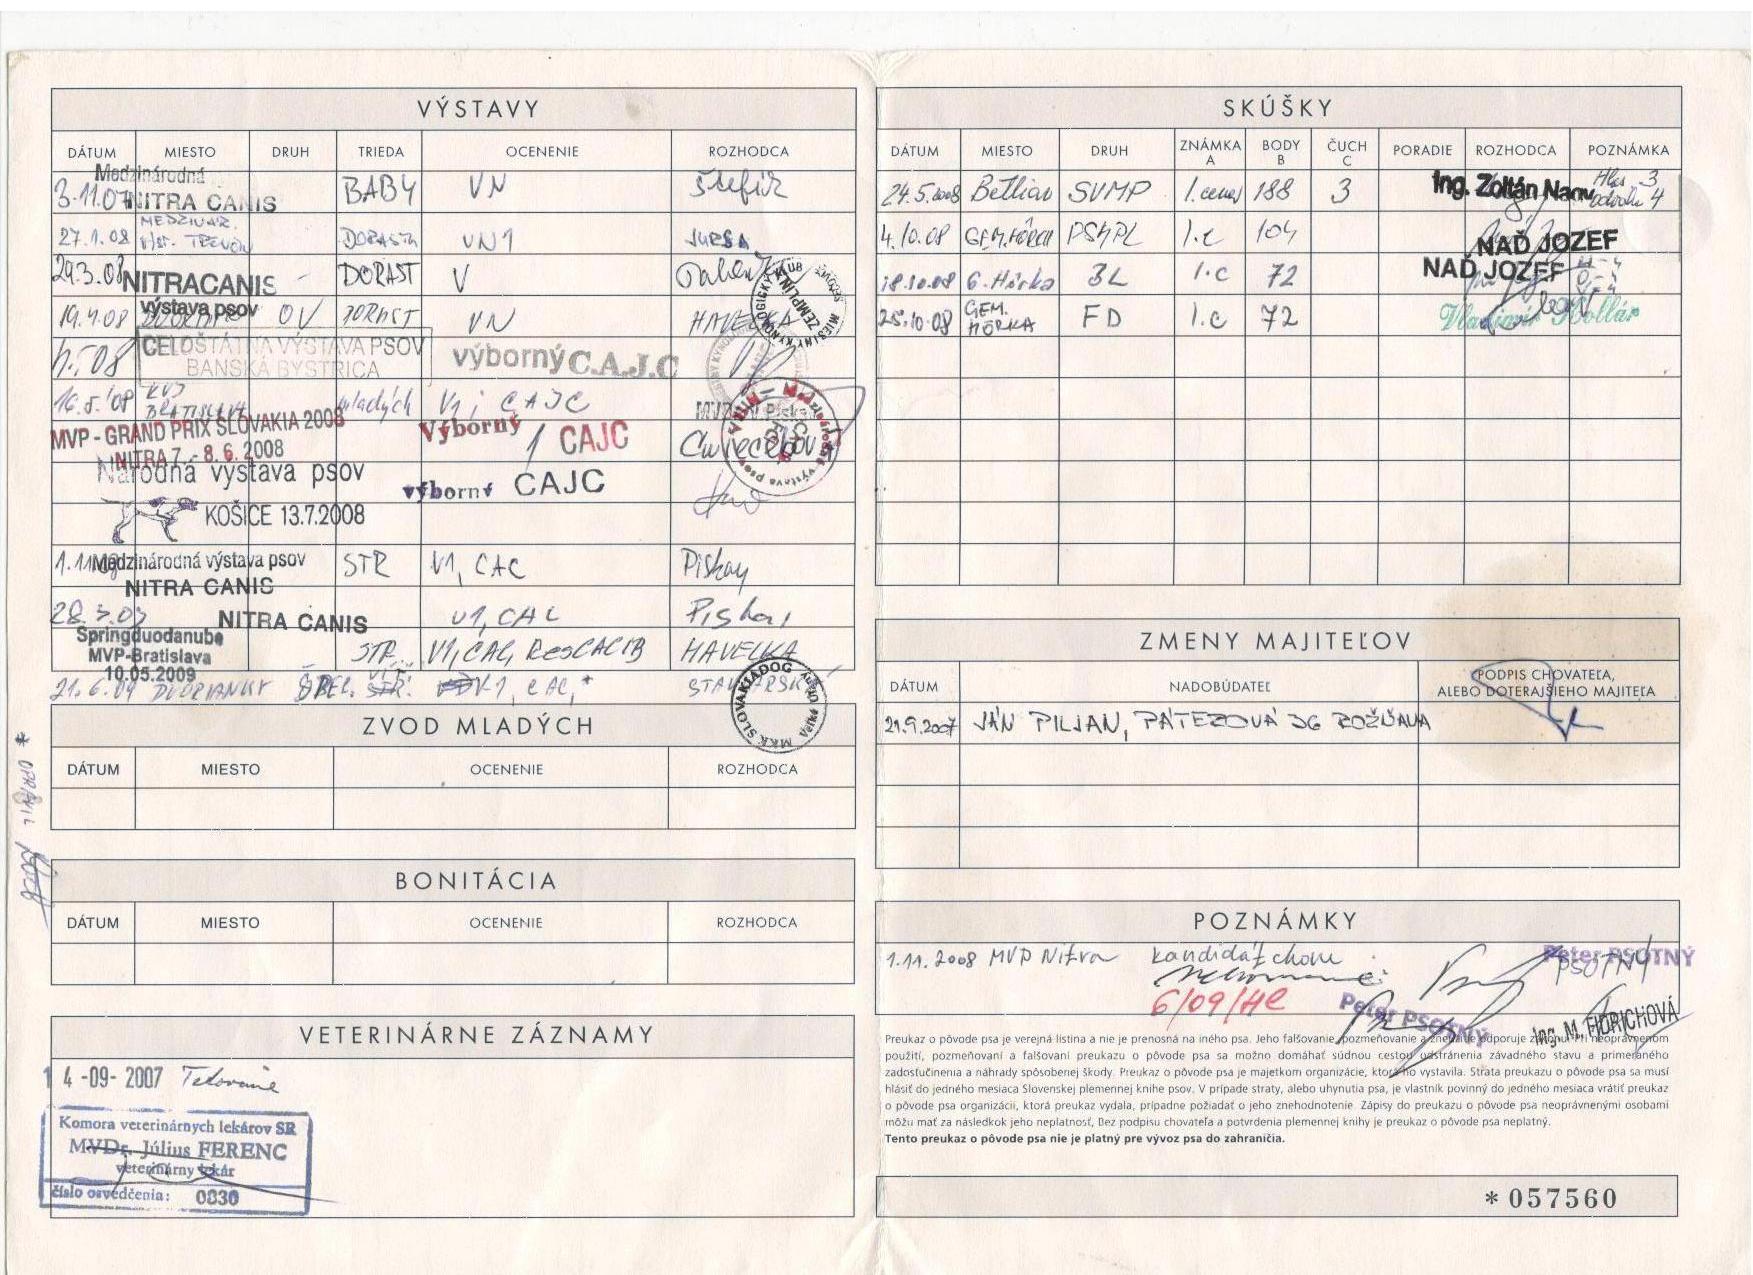 VÝSTAVY
DÁTUM MIESTO DRUH TRIEDA OCENENIE ROZHODCA
Medzinárodná
3.11.07 NITRA CANIS BABY VN
27.1.08 DORAST VN1 JURSA
29.3.08 NITRACANIS - DORAST V
19.4.08 výstava psov OV DORAST VN HAVELKA
CELOŠTÁTNA VÝSTAVA PSOV
BANSKÁ BYSTRICA
výborný C.A.J.C
16.5.'08 BRATISLAVA mladých V1; CAJC
MVP - GRAND PRIX SLOVAKIA 2008
NITRA 7. - 8.6.2008
Výborný 1 CAJC
Národná výstava psov
KOŠICE 13.7.2008
výborný CAJC
Medzinárodná výstava psov
NITRA CANIS
STR V1, CAC Piskay
NITRA CANIS V1, CAC
Springduodanube
MVP-Bratislava
10.05.2009
STR. V1, CAC, ResCACIB HAVELKA
21.6.09 DVORIANKY V-1, CAC,*
MKK SLOVAKIADOG
ZVOD MLADÝCH
DÁTUM MIESTO OCENENIE ROZHODCA
* OPRAVIL
BONITÁCIA
DÁTUM MIESTO OCENENIE ROZHODCA
VETERINÁRNE ZÁZNAMY
14 -09- 2007 Tetovanie
Komora veterinárnych lekárov SR
MVDr. Július FERENC
veterinárny lekár
číslo osvedčenia: 0830
SKÚŠKY
DÁTUM MIESTO DRUH ZNÁMKA A BODY B ČUCH C PORADIE ROZHODCA POZNÁMKA
24.5.2008 Betliar SVMP I.cena 188 3 Ing. Zoltán Hlas 3
4.10.08 GEM.HÔRKA I.c 104 NAĎ JOZEF
18.10.08 G. Hôrka BL I.c 72 NAĎ JOZEF
25.10.08 GEM. HÔRKA FD I.c 72 Vladimír Hollár
ZMENY MAJITEĽOV
DÁTUM NADOBÚDATEĽ PODPIS CHOVATEĽA,
ALEBO DOTERAJŠIEHO MAJITEĽA
21.9.2007 JÁN PILJAN, ROŽŇAVA
POZNÁMKY
1.11.2008 MVP Nitra kandidát chovu
Peter PSOTNÝ
PSOTNÝ
6/09/HC Peter PSOTNÝ
Ing. M. FIDRICHOVÁ
Preukaz o pôvode psa je verejná listina a nie je prenosná na iného psa. Jeho falšovanie, pozmeňovanie a zneužitie odporuje zákonu. Pri neoprávnenom
použití, pozmeňovaní a falšovaní preukazu o pôvode psa sa možno domáhať súdnou cestou odstránenia závadného stavu a primeraného
zadosťučinenia a náhrady spôsobenej škody. Preukaz o pôvode psa je majetkom organizácie, ktorá ho vystavila. Strata preukazu o pôvode psa sa musí
hlásiť do jedného mesiaca Slovenskej plemennej knihe psov. V prípade straty, alebo uhynutia psa, je vlastník povinný do jedného mesiaca vrátiť preukaz
o pôvode psa organizácii, ktorá preukaz vydala, prípadne požiadať o jeho znehodnotenie. Zápisy do preukazu o pôvode psa neoprávnenými osobami
môžu mať za následkok jeho neplatnosť, Bez podpisu chovateľa a potvrdenia plemennej knihy je preukaz o pôvode psa neplatný.
Tento preukaz o pôvode psa nie je platný pre vývoz psa do zahraničia.
*057560